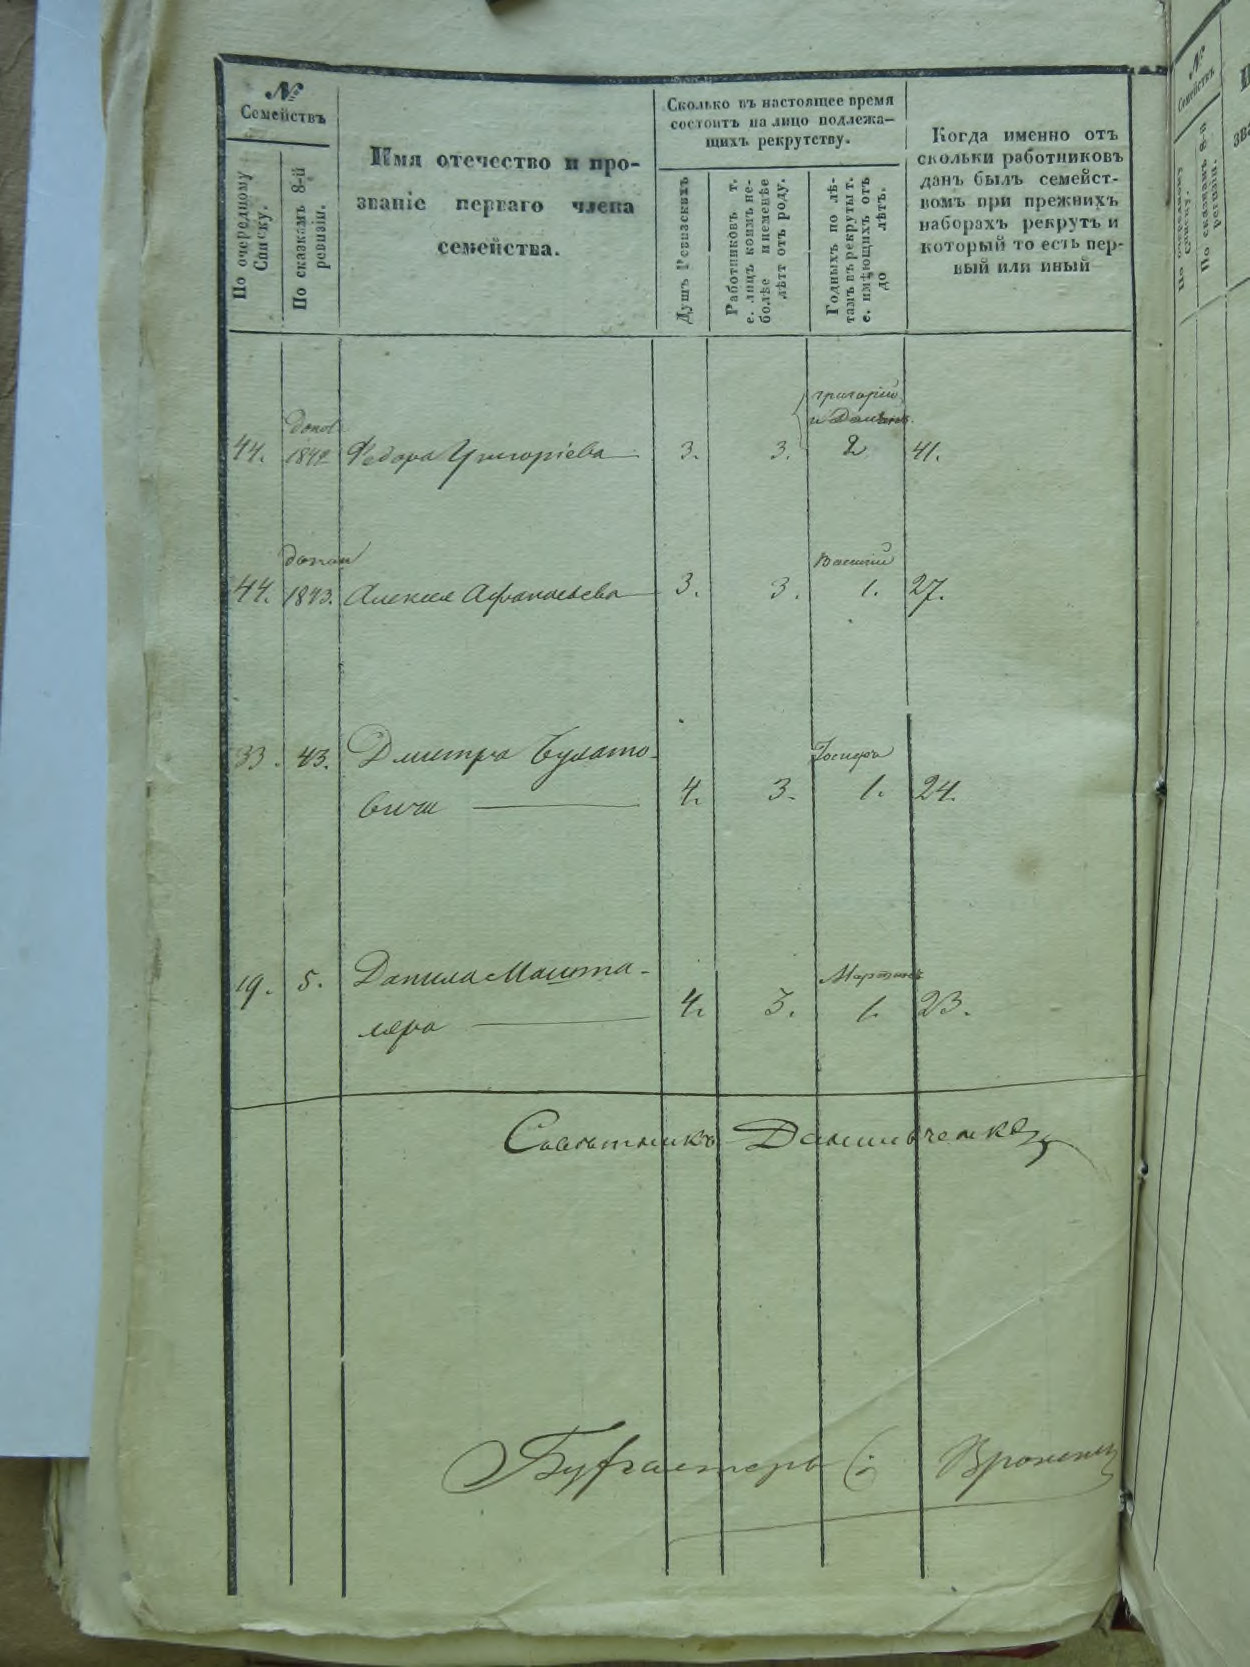 №
Семействъ
По очередному
Списку.
По сказкамъ 8-й
ревизіи.
Имя отечество и про-
званіе перваго члена
семейства.
Сколько въ настоящее время
состоитъ на лицо подлежа-
щихъ рекрутству.
Душъ Ревизскихъ
Работниковъ т.
е. лицъ коимъ не-
болѣе и неменѣе
лѣтт отъ роду.
Годныхъ по лѣ-
тамъ въ рекруты т.
е. имѣющихъ отъ
до лѣтъ.
Когда именно отъ
скольки работниковъ
данъ былъ семейст-
вомъ при прежнихъ
наборахъ рекрутъ и
который то есть пер-
вый или иный
Григорій
и
44. 1842 Федора Григоріева 3. 3. 2 41.
Василій
44. 1843. Алексея Афанасьева 3. 3. 1. 27.
Іосифъ
33. 43. Дмитра Булато-
вича 4. 3. 1. 24.
Мартинъ
19. 5. Данила Машта-
ляра 4. 3. 1. 23.
Бургмистръ
№
Семействъ
По очередному
Списку.
По сказкамъ 8-й
ревизіи.